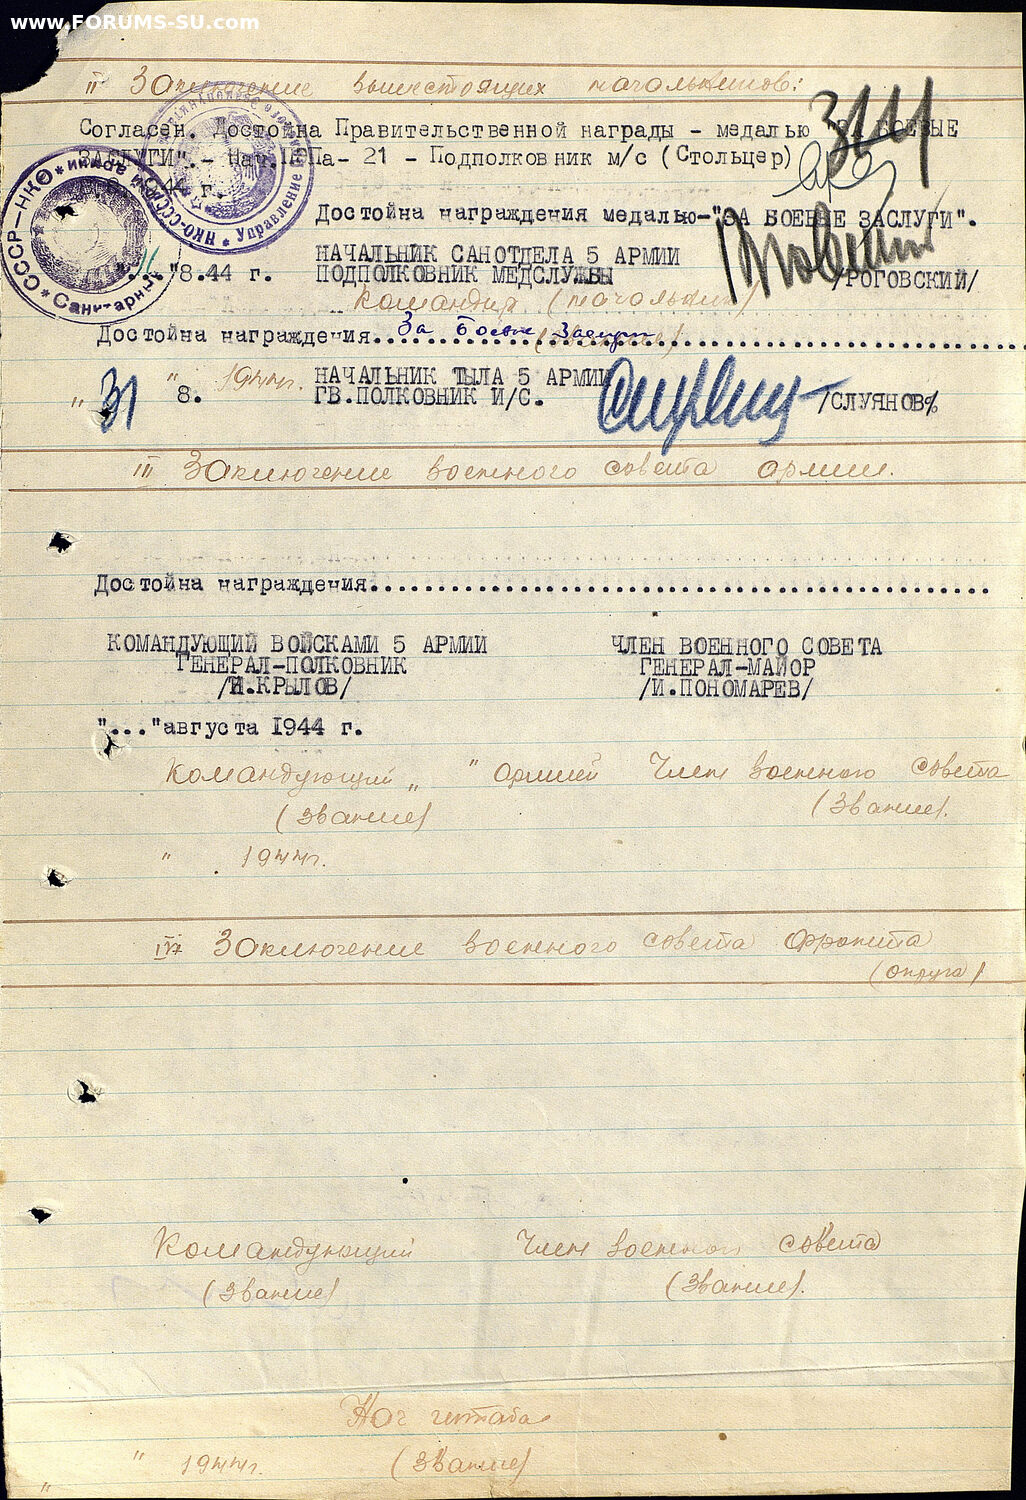 www.FORUMS-SU.com
II Заключение вышестоящих начальников:
Согласен. Достойна Правительственной награды - медалью "ЗА БОЕВЫЕ
ЗАСЛУГИ".- Нач. Па- 21 - Подполковник м/с (Стольцер)
44 г.
Достойна награждения медалью-"ЗА БОЕВЫЕ ЗАСЛУГИ".
НАЧАЛЬНИК САНОТДЕЛА 5 АРМИИ
"8.44 г. ПОДПОЛКОВНИК МЕДСЛУЖБЫ /РОГОВСКИЙ/
Командир (начальник)
Достойна награждения... За боевые заслуги
(звание)
" 31 " 8. 1944г. НАЧАЛЬНИК ТЫЛА 5 АРМИИ
ГВ.ПОЛКОВНИК И/С. /СЛУЯНОВ%
III Заключение военного совета армии.
Достойна награждения.......................................................
КОМАНДУЮЩИЙ ВОЙСКАМИ 5 АРМИИ ЧЛЕН ВОЕННОГО СОВЕТА
ГЕНЕРАЛ-ПОЛКОВНИК ГЕНЕРАЛ-МАЙОР
/И.КРЫЛОВ/ /И.ПОНОМАРЕВ/
"..."августа 1944 г.
Командующий " " армией Член военного совета
(звание) (звание).
" 1944г.
IV Заключение военного совета фронта
(округа)
Командующий Член военного совета
(звание) (звание).
Нач штаба
" " 1944г. (звание)
НКО-СССР * Управление
СССР-НКО * Санитарный